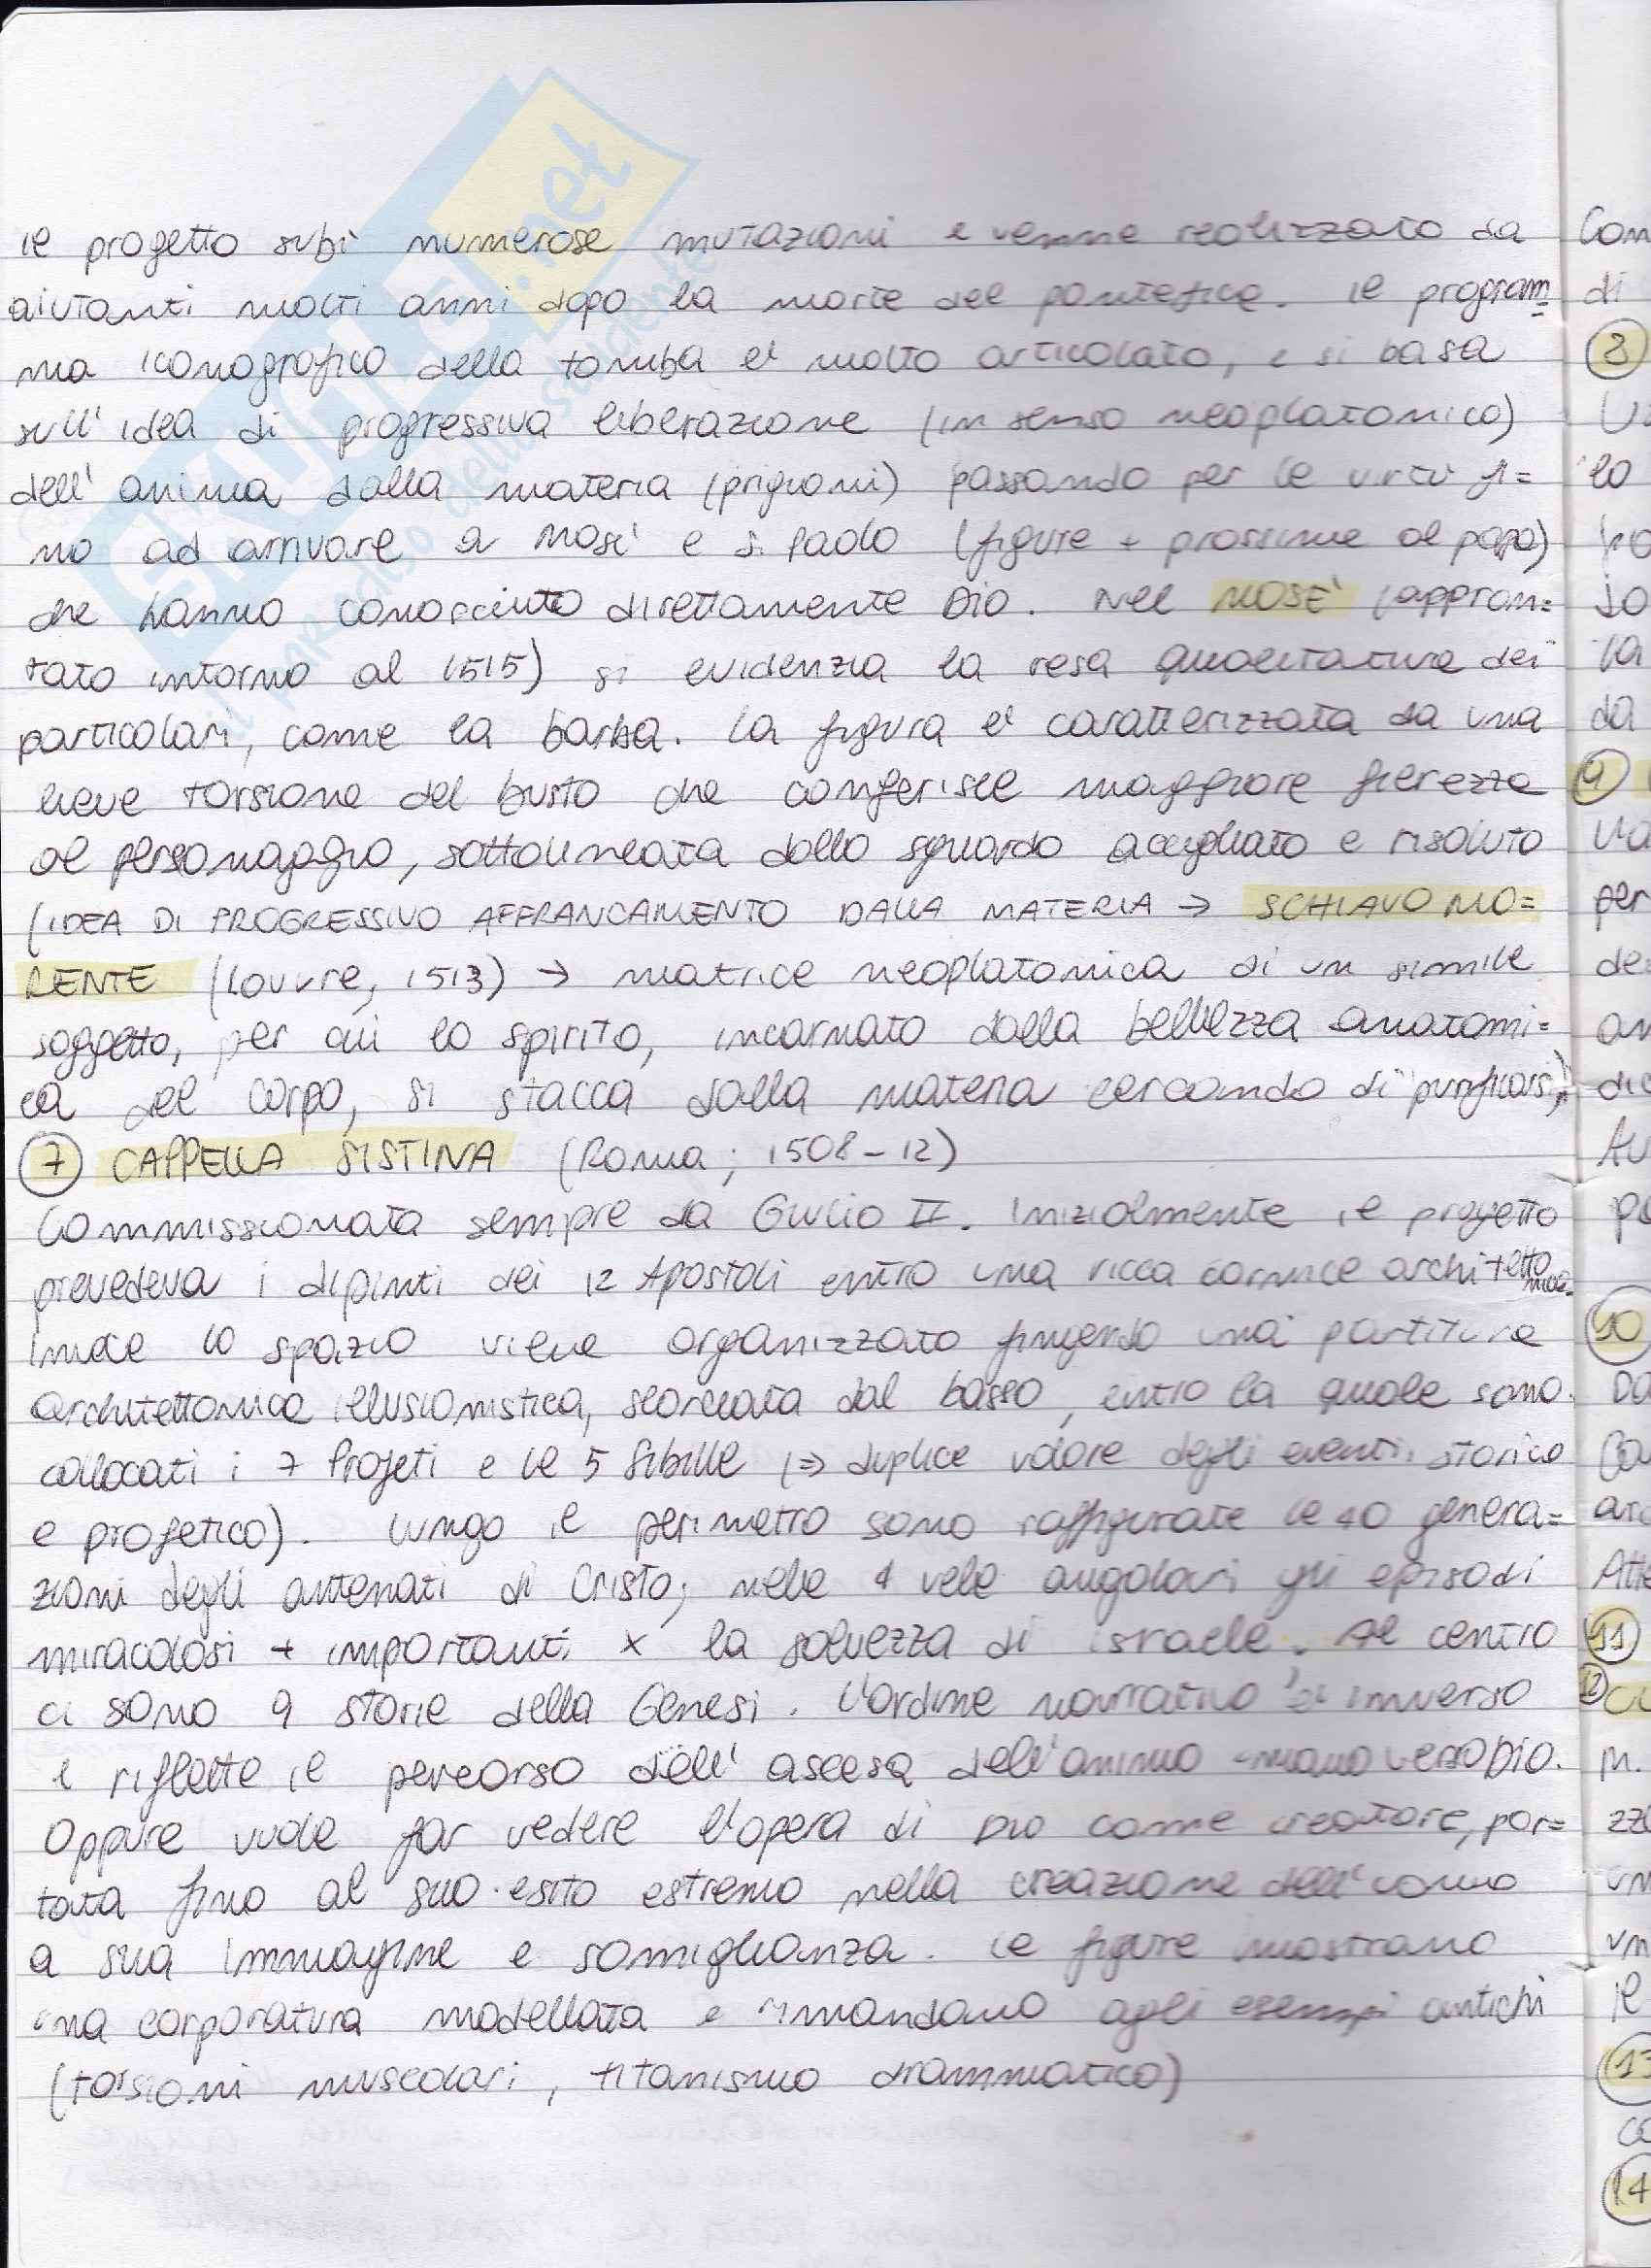 il progetto subì numerose mutazioni e venne realizzato da
aiutanti molti anni dopo la morte del pontefice. Il program=
ma iconografico della tomba e' molto articolato, e si basa
sull'idea di progressiva liberazione (in senso neoplatonico)
dell'anima dalla materia (prigioni) passando per le virtù fi=
no ad arrivare a Mosè e S. Paolo (figure + prossime al papa)
che hanno conosciuto direttamente Dio. Nel MOSE' (appron=
tato intorno al 1515) si evidenzia la resa qualitativa dei
particolari, come la barba. La figura e' caratterizzata da una
lieve torsione del busto che conferisce maggiore fierezza
al personaggio, sottolineata dallo sguardo accigliato e risoluto
(IDEA DI PROGRESSIVO AFFRANCAMENTO DALLA MATERIA → SCHIAVO MO=
RENTE (Louvre, 1513) → matrice neoplatonica di un simile
soggetto, per cui lo spirito, incarnato dalla bellezza anatomi=
ca del corpo, si stacca dalla materia cercando di purificarsi)
7 CAPPELLA SISTINA (Roma; 1508-12)
Commissionata sempre da Giulio II. Inizialmente il progetto
prevedeva i dipinti dei 12 Apostoli entro una ricca cornice architettonica.
Invece lo spazio viene organizzato fingendo una partitura
architettonica illusionistica, scorciata dal basso, entro la quale sono
collocati i 7 Profeti e le 5 Sibille (⇒ duplice valore degli eventi: storico
e profetico). Lungo il perimetro sono raffigurate le 40 genera=
zioni degli antenati di Cristo; nelle 4 vele angolari gli episodi
miracolosi + importanti x la salvezza di Israele. Al centro
ci sono 9 storie della Genesi. L'ordine narrativo e' inverso
e riflette il percorso dell'ascesa dell'animo umano verso Dio.
Oppure vuole far vedere l'opera di Dio come creatore, por=
tata fino al suo esito estremo nella creazione dell'uomo
a sua immagine e somiglianza. Le figure mostrano
una corporatura modellata e rimandano agli esempi antichi
(torsioni muscolari, titanismo drammatico)
SKUOLA.net
Com
di
8
lo
da
9
per
de
an
10
11
12
13
14